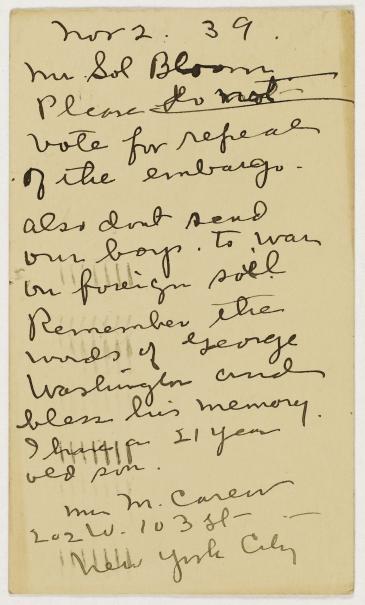 Nov 2. 39.
Mr Sol Bloom
Please do not
vote for repeal
of the embargo.
also dont send
our boys. to war
on foreign soil
Remember the
words of George
Washington and
bless his memory.
I have a 21 year
old son.
Mrs M. Carew
202 W. 103 st
New York City